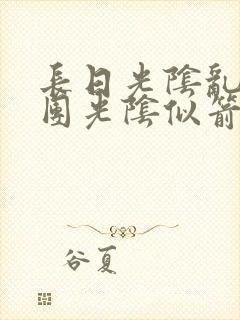 長日光陰亂
團光陰似箭
谷夏